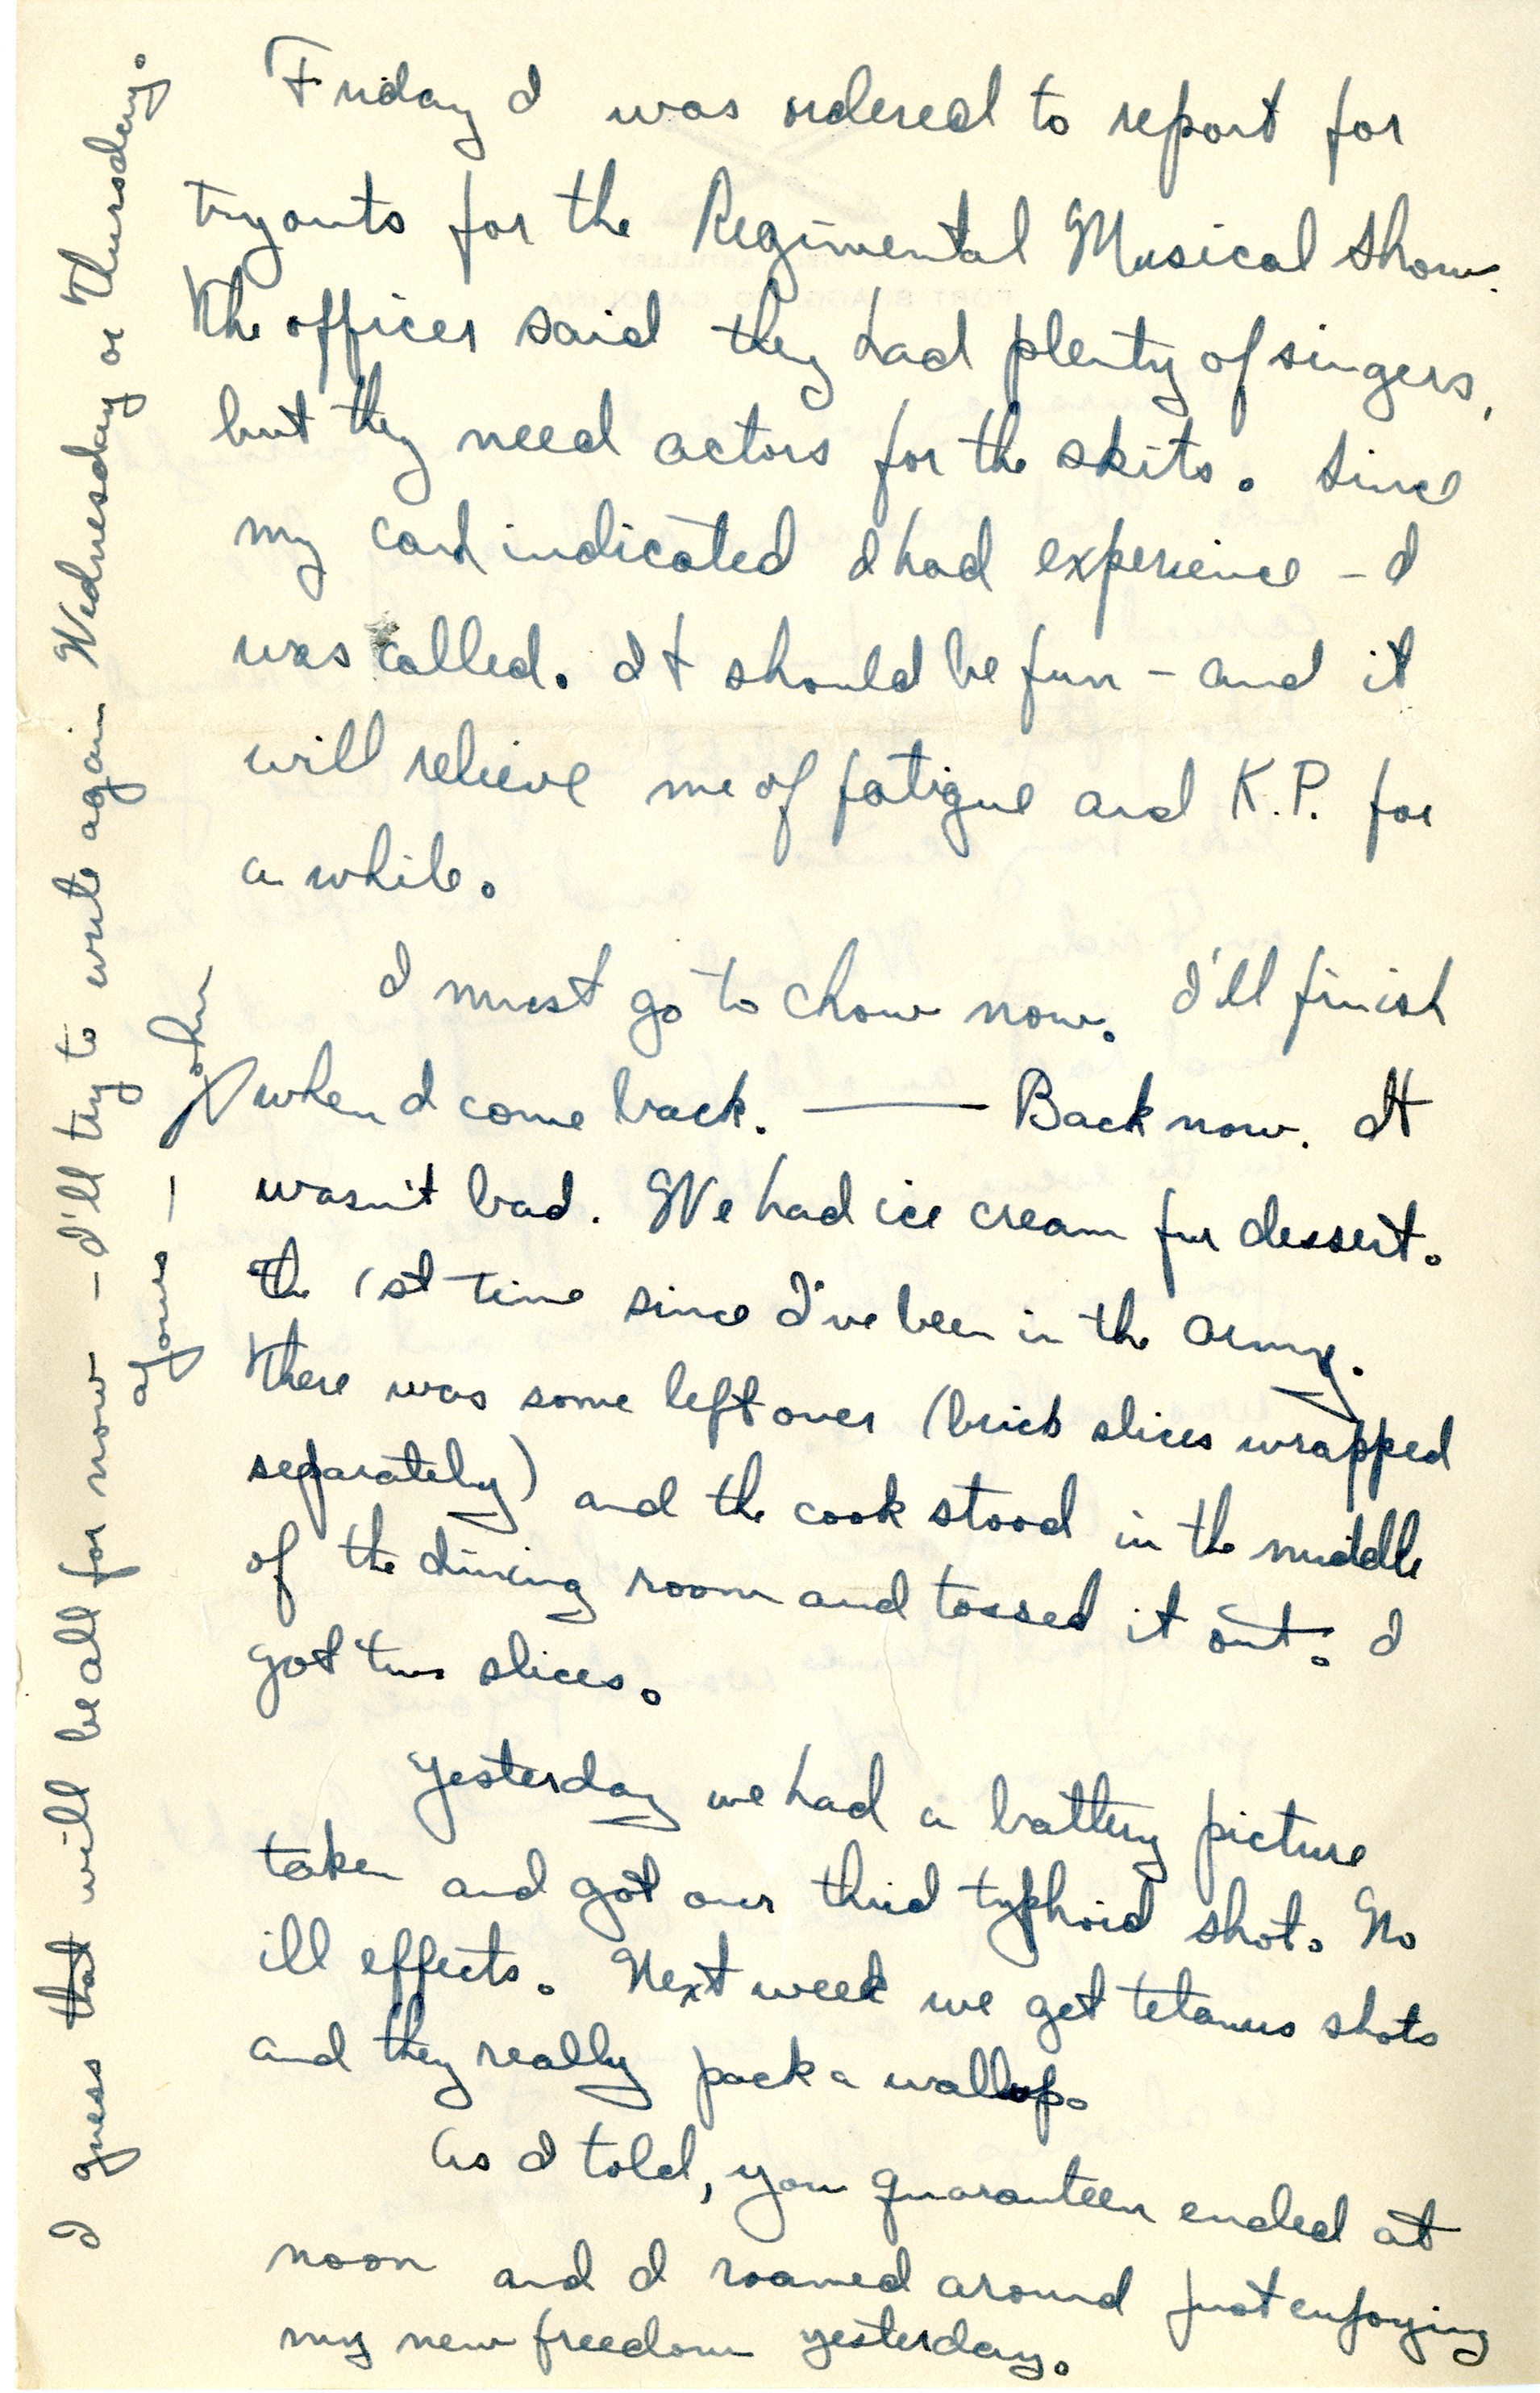 Friday I was ordered to report for
tryouts for the Regimental Musical Show.
The officer said they had plenty of singers,
but they need actors for the skits. Since
my card indicated I had experience – I
was called. It should be fun – and it
will relieve me of fatigue and K.P. for
a while.
I must go to chow now. I'll finish
when I come back. —— Back now. It
wasn't bad. We had ice cream for dessert.
The 1st time since I've been in the army.
There was some left over (brick slices wrapped
separately) and the cook stood in the middle
of the dining room and tossed it out. I
got two slices.
Yesterday we had a battery picture
taken and got our third typhoid shot. No
ill effects. Next week we get tetanus shots
and they really pack a wallop.
As I told, you quaranteen ended at
noon and I roamed around just enjoying
my new freedom yesterday.
I guess that will be all for now – I'll try to write again Wednesday or Thursday.
ayours — John
FORT BRAGG, NO. CAROLINA